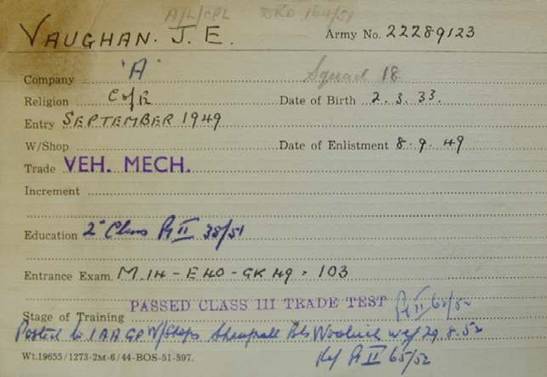 A/L/CPL RRO 164/51
VAUGHAN. J. E. Army No. 22289123
Company 'A' Squad 18
Religion C of E Date of Birth 2. 3. 33.
Entry SEPTEMBER 1949
W/Shop Date of Enlistment 8. 9. 49
Trade VEH. MECH.
Increment
Education 2" Class Pt II 38/51
Entrance Exam. M.14 - E40 - GK 49 . 103
PASSED CLASS III TRADE TEST Pt II 65/52
Stage of Training
Posted to 1 AA GP W/Shops Bks Woolwich wef 29.8.52
Wt.19655/1273-2M-6/44-BOS-51-897. Ref Pt II 65/52